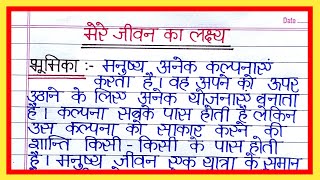 Date
मेरे जीवन का लक्ष्य
भूमिका :- मनुष्य अनेक कल्पनाएं
करता है। वह अपने को ऊपर
उठाने के लिए अनेक योजनाएं बनाता
है। कल्पना सबके पास होती है लेकिन
उस कल्पना को साकार करने की
शान्ति किसी - किसी के पास होती
है। मनुष्य जीवन एक यात्रा के समान